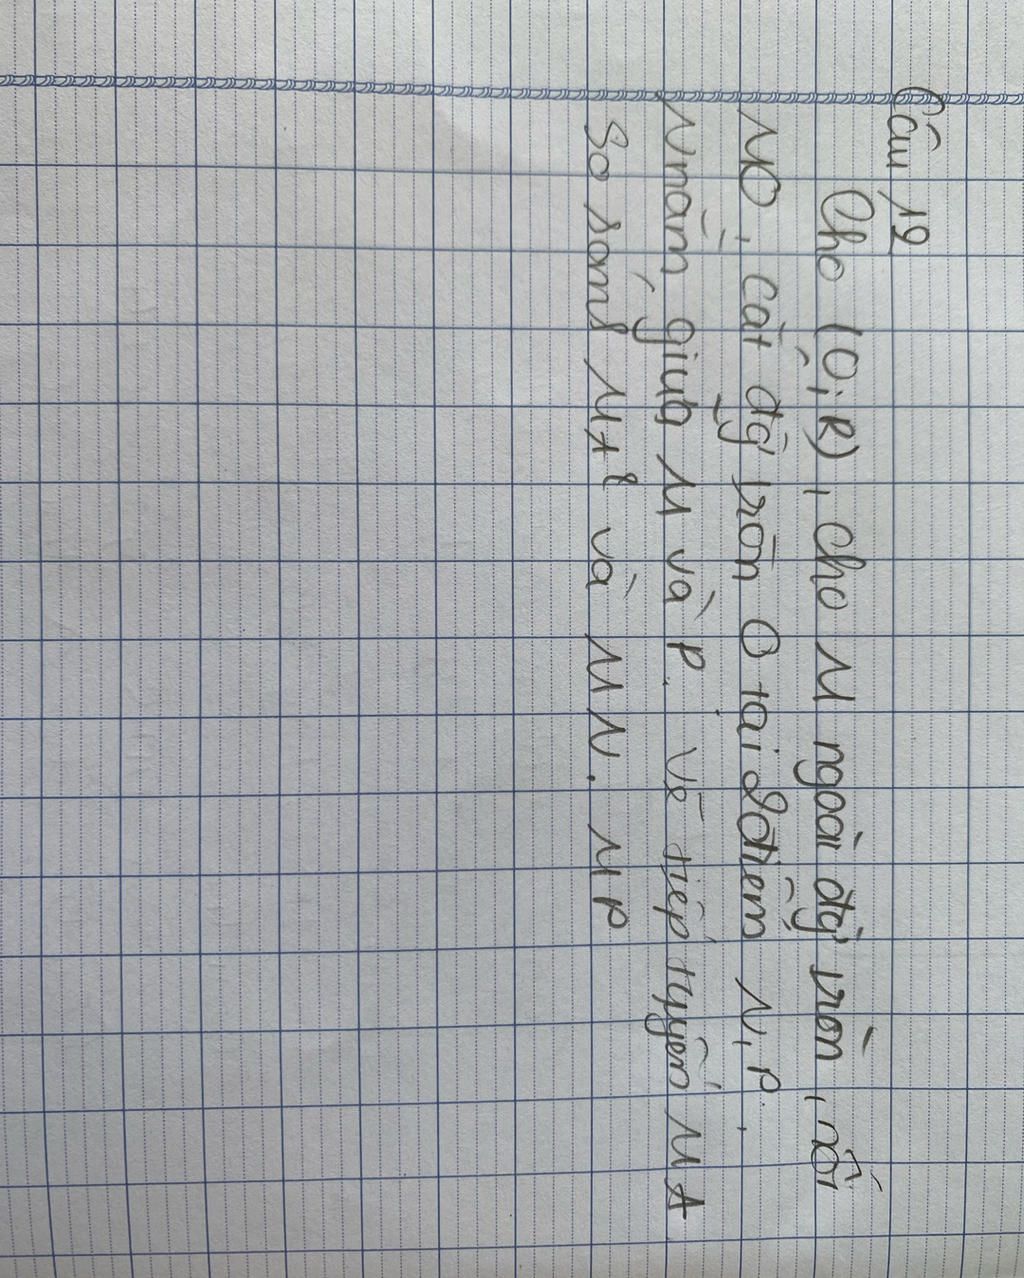 Câu 12
Cho (O; R), cho M ngoài đg tròn, nối
MO, cắt đg tròn O tại 2 điểm N, P.
N nằm giữa M và P. Vẽ tiếp tuyến MA
So sánh MA² và MN. MP